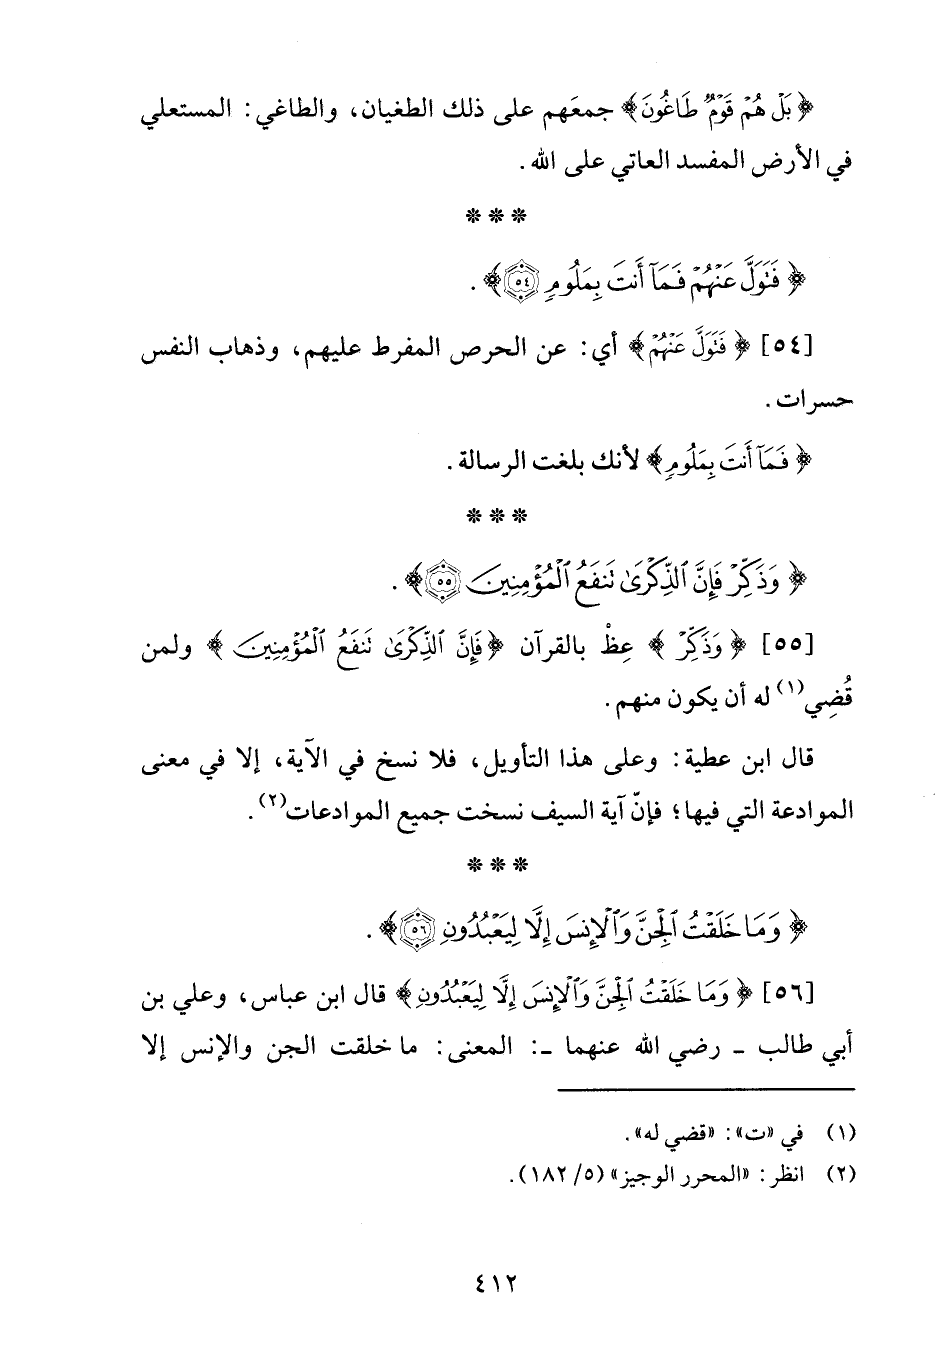 ﴿بَلْ هُمْ قَوْمٌ طَاغُونَ﴾ جمعَهم على ذلك الطغيان، والطاغي: المستعلي
في الأرض المفسد العاتي على الله.
* * *
﴿فَتَوَلَّ عَنْهُمْ فَمَا أَنتَ بِمَلُومٍ ٥٤﴾.
[٥٤] ﴿فَتَوَلَّ عَنْهُمْ﴾ أي: عن الحرص المفرط عليهم، وذهاب النفس
حسرات.
﴿فَمَا أَنتَ بِمَلُومٍ﴾ لأنك بلغت الرسالة.
* * *
﴿وَذَكِّرْ فَإِنَّ ٱلذِّكْرَىٰ تَنفَعُ ٱلْمُؤْمِنِينَ ٥٥﴾.
[٥٥] ﴿وَذَكِّرْ﴾ عِظْ بالقرآن ﴿فَإِنَّ ٱلذِّكْرَىٰ تَنفَعُ ٱلْمُؤْمِنِينَ﴾ ولمن
قُضِي(١) له أن يكون منهم.
قال ابن عطية: وعلى هذا التأويل، فلا نسخ في الآية، إلا في معنى
الموادعة التي فيها؛ فإنّ آية السيف نسخت جميع الموادعات(٢).
* * *
﴿وَمَا خَلَقْتُ ٱلْجِنَّ وَٱلْإِنسَ إِلَّا لِيَعْبُدُونِ ٥٦﴾.
[٥٦] ﴿وَمَا خَلَقْتُ ٱلْجِنَّ وَٱلْإِنسَ إِلَّا لِيَعْبُدُونِ﴾ قال ابن عباس، وعلي بن
أبي طالب - رضي الله عنهما -: المعنى: ما خلقت الجن والإنس إلا
(١) في «ت»: «قضي له».
(٢) انظر: «المحرر الوجيز» (٥/ ١٨٢).
٤١٢